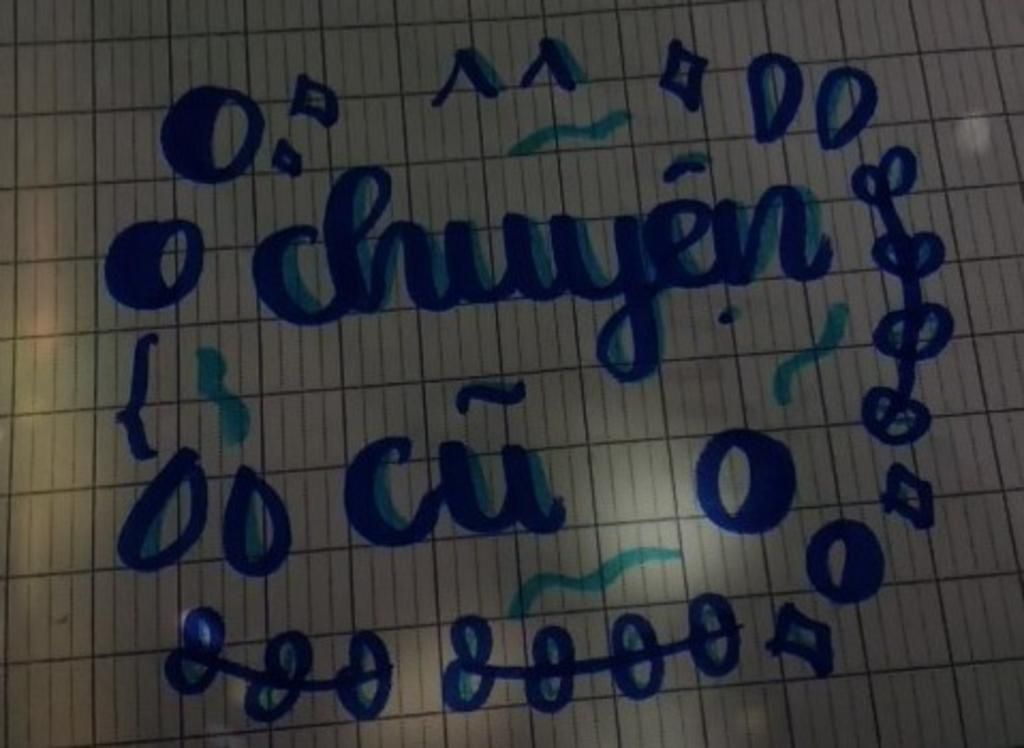 chuyện
cũ